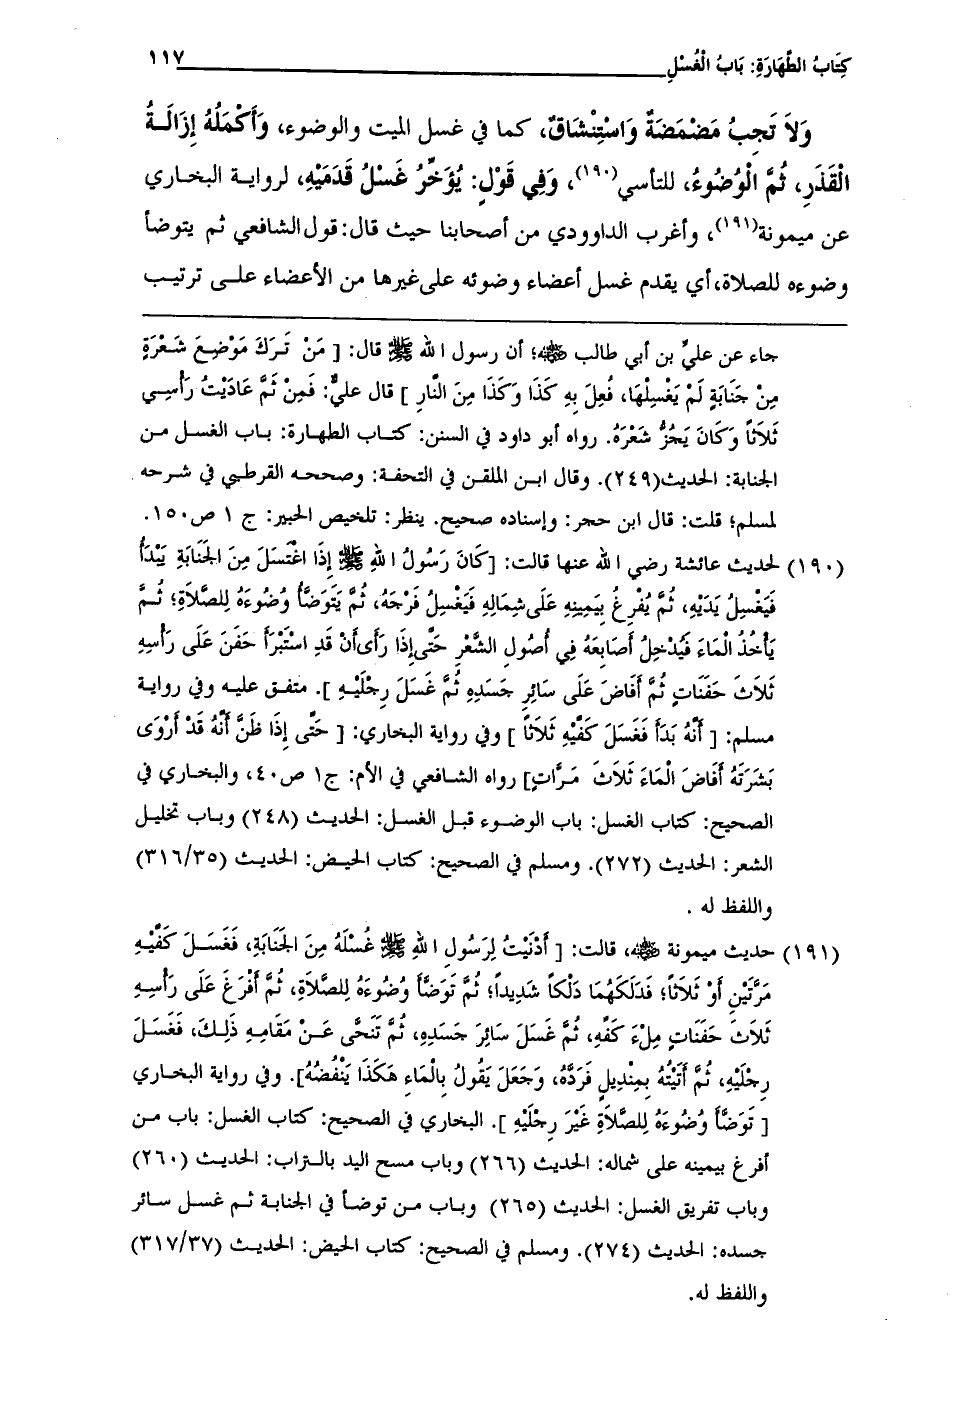 كِتَابُ الطَّهَارَةِ: بَابُ الْغُسْلِ ١١٧
وَلاَ تَجِبُ مَضْمَضَةٌ وَاسْتِنْشَاقٌ، كما في غسل الميت والوضوء، وَأَكْمَلُهُ إِزَالَةُ
الْقَذَرِ، ثُمَّ الْوُضُوءُ، للتأسي(١٩٠)، وَفِي قَوْلٍ: يُؤَخِّرُ غَسْلَ قَدَمَيْهِ، لرواية البخاري
عن ميمونة(١٩١)، وأغرب الداوودي من أصحابنا حيث قال: قول الشافعي ثم يتوضأ
وضوءه للصلاة، أي يقدم غسل أعضاء وضوئه على غيرها من الأعضاء على ترتيب
جاء عن عليِّ بن أبي طالب ﷺ؛ أن رسول الله ﷺ قال: [ مَنْ تَرَكَ مَوْضِعَ شَعْرَةٍ
مِنْ جَنَابَةٍ لَمْ يَغْسِلْهَا، فُعِلَ بِهِ كَذَا وَكَذَا مِنَ النَّارِ ] قال عليٌّ: فَمِنْ ثَمَّ عَادَيْتُ رَأْسِي
ثَلاَثاً وَكَانَ يَجُزُّ شَعْرَهُ. رواه أبو داود في السنن: كتاب الطهارة: باب الغسل من
الجنابة: الحديث(٢٤٩). وقال ابن الملقن في التحفة: وصححه القرطبي في شرحه
لمسلم؛ قلت: قال ابن حجر: وإسناده صحيح. ينظر: تلخيص الحبير: ج ١ ص١٥٠.
(١٩٠) لحديث عائشة رضي الله عنها قالت: [كَانَ رَسُولُ اللهِ ﷺ إِذَا اغْتَسَلَ مِنَ الْجَنَابَةِ يَبْدَأُ
فَيَغْسِلُ يَدَيْهِ، ثُمَّ يُفْرِغُ بِيَمِينِهِ عَلَى شِمَالِهِ فَيَغْسِلُ فَرْجَهُ، ثُمَّ يَتَوَضَّأُ وُضُوءَهُ لِلصَّلاَةِ؛ ثُمَّ
يَأْخُذُ الْمَاءَ فَيُدْخِلُ أَصَابِعَهُ فِي أُصُولِ الشَّعْرِ حَتَّى إِذَا رَأَى أَنْ قَدِ اسْتَبْرَأَ حَفَنَ عَلَى رَأْسِهِ
ثَلاَثَ حَفَنَاتٍ ثُمَّ أَفَاضَ عَلَى سَائِرِ جَسَدِهِ ثُمَّ غَسَلَ رِجْلَيْهِ ]. متفق عليه وفي رواية
مسلم: [ أَنَّهُ بَدَأَ فَغَسَلَ كَفَّيْهِ ثَلاَثاً ] وفي رواية البخاري: [ حَتَّى إِذَا ظَنَّ أَنَّهُ قَدْ أَرْوَى
بَشَرَتَهُ أَفَاضَ الْمَاءَ ثَلاَثَ مَرَّاتٍ] رواه الشافعي في الأم: ج١ ص٤٠، والبخاري في
الصحيح: كتاب الغسل: باب الوضوء قبل الغسل: الحديث (٢٤٨) وباب تخليل
الشعر: الحديث (٢٧٢). ومسلم في الصحيح: كتاب الحيض: الحديث (٣١٦/٣٥)
واللفظ له .
(١٩١) حديث ميمونة ﷺ، قالت: [ أَدْنَيْتُ لِرَسُولِ اللهِ ﷺ غُسْلَهُ مِنَ الْجَنَابَةِ، فَغَسَلَ كَفَّيْهِ
مَرَّتَيْنِ أَوْ ثَلاَثاً؛ فَدَلَكَهُمَا دَلْكاً شَدِيداً؛ ثُمَّ تَوَضَّأَ وُضُوءَهُ لِلصَّلاَةِ، ثُمَّ أَفْرَغَ عَلَى رَأْسِهِ
ثَلاَثَ حَفَنَاتٍ مِلْءَ كَفِّهِ، ثُمَّ غَسَلَ سَائِرَ جَسَدِهِ، ثُمَّ تَنَحَّى عَنْ مَقَامِهِ ذَلِكَ، فَغَسَلَ
رِجْلَيْهِ، ثُمَّ أَتَيْتُهُ بِمِنْدِيلٍ فَرَدَّهُ، وَجَعَلَ يَقُولُ بِالْمَاءِ هَكَذَا يَنْفُضُهُ]. وفي رواية البخاري
[ تَوَضَّأَ وُضُوءَهُ لِلصَّلاَةِ غَيْرَ رِجْلَيْهِ ]. البخاري في الصحيح: كتاب الغسل: باب من
أفرغ بيمينه على شماله: الحديث (٢٦٦) وباب مسح اليد بالتراب: الحديث (٢٦٠)
وباب تفريق الغسل: الحديث (٢٦٥) وباب من توضأ في الجنابة ثم غسل سائر
جسده: الحديث (٢٧٤). ومسلم في الصحيح: كتاب الحيض: الحديث (٣١٧/٣٧)
واللفظ له.